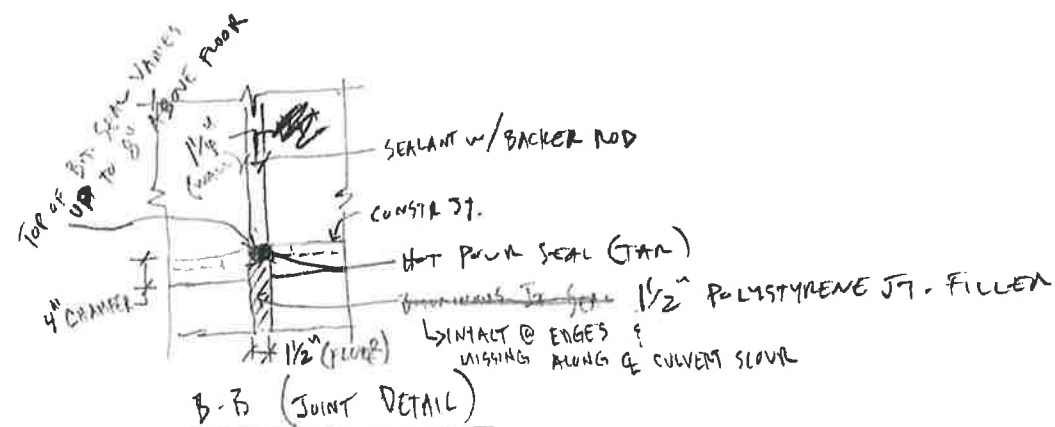 TOP OF BIT. SEAL VARIES
UP TO 8" ABOVE FLOOR
1 1/4"
(WALL)
SEALANT W/ BACKER ROD
CONSTR JT.
HOT POUR SEAL (TAR)
4" CHAMFER
BITUMINOUS JT. SEAL 1 1/2" POLYSTYRENE JT. FILLER
↳INTACT @ EDGES &
MISSING ALONG ℄ CULVERT SCOUR
1 1/2" (FLOOR)
B-B (JOINT DETAIL)